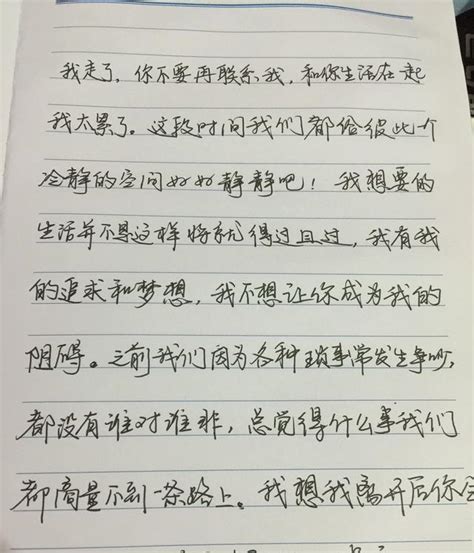 我走了，你不要再联系我，和你生活在一起
我太累了。这段时间我们都给彼此一个
冷静的空间好好静静吧！我想要的
生活并不是这样将就得过且过，我有我
的追求和梦想，我不想让你成为我的
阴碍。之前我们因为各种琐事常发生争吵，
都没有谁对谁非，总觉得什么事我们
都商量不到一条路上。我想我离开后你会